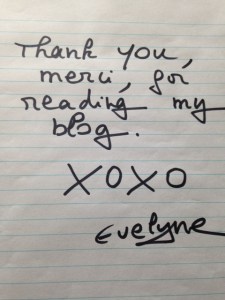 Thank you,
merci, for
reading my
blog.
XOXO
Evelyne